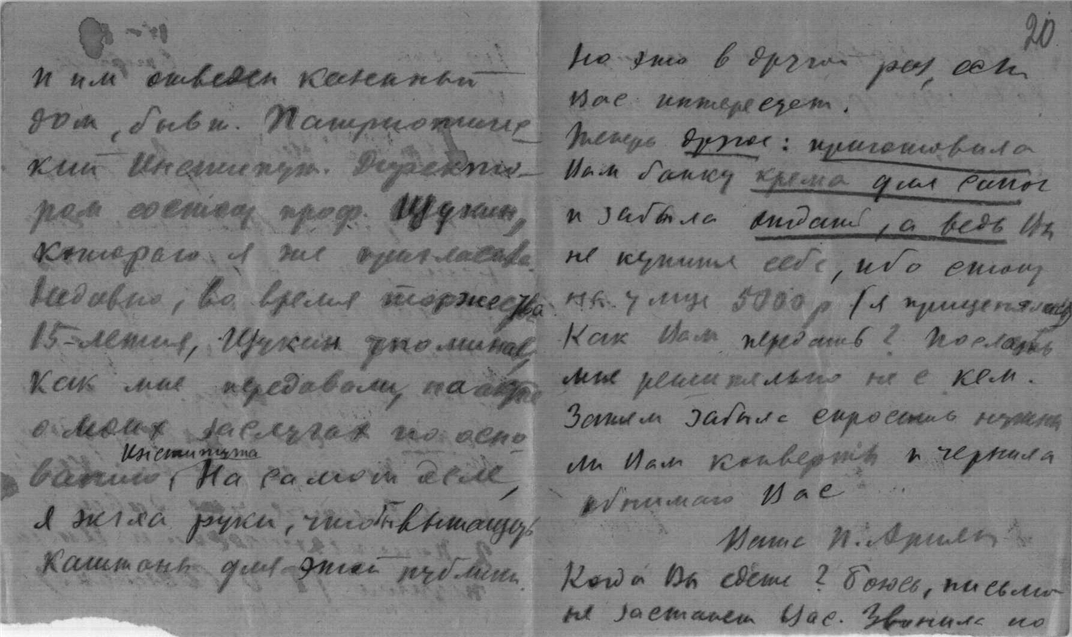 и им отведен казенный
дом, бывш. Патриотичес
кий Институт. Директо-
ром состоял проф. Щукин,
которого я же пригласила.
Недавно, во время торжества
15-летия, Щукин упоминал,
как мне передавали, на акте
о моих заслугах по осно
ванию Института. На самом деле,
я жгла руки, чтобы вытащить
каштаны для этой публики.
20
Но это в другой раз, если
Вас интересует.
Теперь другое: приготовила
Вам банку крема для сапог
и забыла отдать, а ведь Вы
не купите себе, ибо стоит
на улице 5000 р (я приценялась)
Как Вам передать? Послать
мне решительно не с кем.
Затем забыла спросить нужны
ли Вам конверты и чернила
обнимаю Вас
Ваша П.
Когда Вы едете? Боюсь, письмо
не застанет Вас. Звонила по